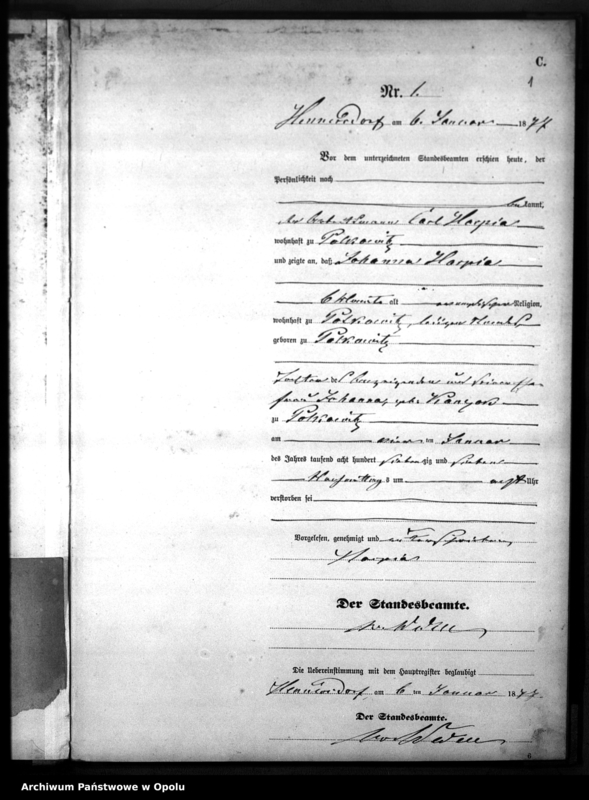 C.
1
Nr. 1.
Hennersdorf am 6. Januar 1877
Vor dem unterzeichneten Standesbeamten erschien heute, der
Persönlichkeit nach
bekannt,
der Carl Hospia
wohnhaft zu Polkowitz
und zeigte an, daß Johanna Hospia
6 Monate alt evangelischer Religion,
wohnhaft zu Polkowitz,
geboren zu Polkowitz
Tochter des Anzeigenden und seiner Ehe-
frau Johanna, geb.
zu Polkowitz
am vier ten Januar
des Jahres tausend acht hundert siebenzig und sieben
Nachmittags um acht Uhr
verstorben sei
Vorgelesen, genehmigt und unterschrieben
Hospia
Der Standesbeamte.
Die Uebereinstimmung mit dem Hauptregister beglaubigt
Hennersdorf am 6 ten Januar 1877.
Der Standesbeamte.
6
Archiwum Państwowe w Opolu